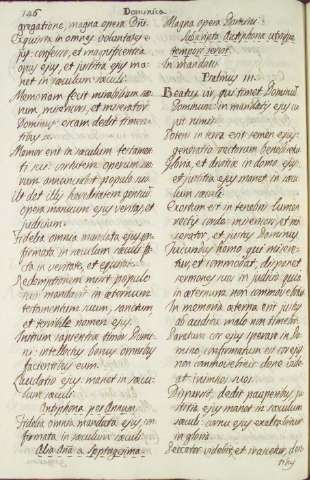 146
Dominica
gregatione, magna opera Dni.
Exquisita in omnes voluntates e-
jus. confessio, et magnificentia
opus ejus, et justitia ejus ma-
net in sæculum sæculi.
Memoriam fecit mirabilium suo-
rum misericors, et miserator
Dominus: escam dedit timen-
tibus se.
Memor erit in sæculum testamen-
ti sui: virtutem operum suo-
rum annunciabit populo suo.
Ut det illis hæreditatem gentium
opera manuum ejus veritas, et
judicium.
Fidelia omnia mandata ejus con-
firmata in sæculum sæculi fa-
cta in veritate, et equitate.
Redemptionem misit populo
suo mandavit in æternum
testamentum suum, sanctum
et terribile nomen ejus.
Initium sapientiæ timor Domi-
ni: intellectus bonus omnibus
facientibus eum.
Laudatio ejus manet in sæcu-
lum sæculi.
Antiphona per Annum.
Fidelia omnia mandata ejus con-
firmata in sæculum sæculi.
Alia Aña a Septuagesima
Magna opera Domini:
tempore servit.
In mandatis
Psalmus 111.
Beatus vir, qui timet Dominum
Dominum: in mandatis ejus vo-
let nimis.
Potens in terra erit semen ejus:
generatio rectorum benedicetur
Gloria, et divitiæ in domo ejus,
et justitia ejus manet in sæcu-
lum sæculi.
Exortum est in tenebris lumen
rectis corde: misericors, et mi-
serator, et justus Dominus.
Jucundus homo qui misere-
tur, et commodat, disponet
sermones suos in judicio quia
in æternum non commovebitur
In memoria æterna erit justus
ab auditu malo non timebit.
Paratum cor ejus sperare in Do-
mino, confirmatum est cor ejus
non commovebitur donec despi-
ciat inimicos suos.
Dispersit, dedit pauperibus, ju-
stitia ejus manet in sæculum
sæculi: cornu ejus exaltabitur
in gloria.
Peccator videbit, et irascetur, den-
tibus